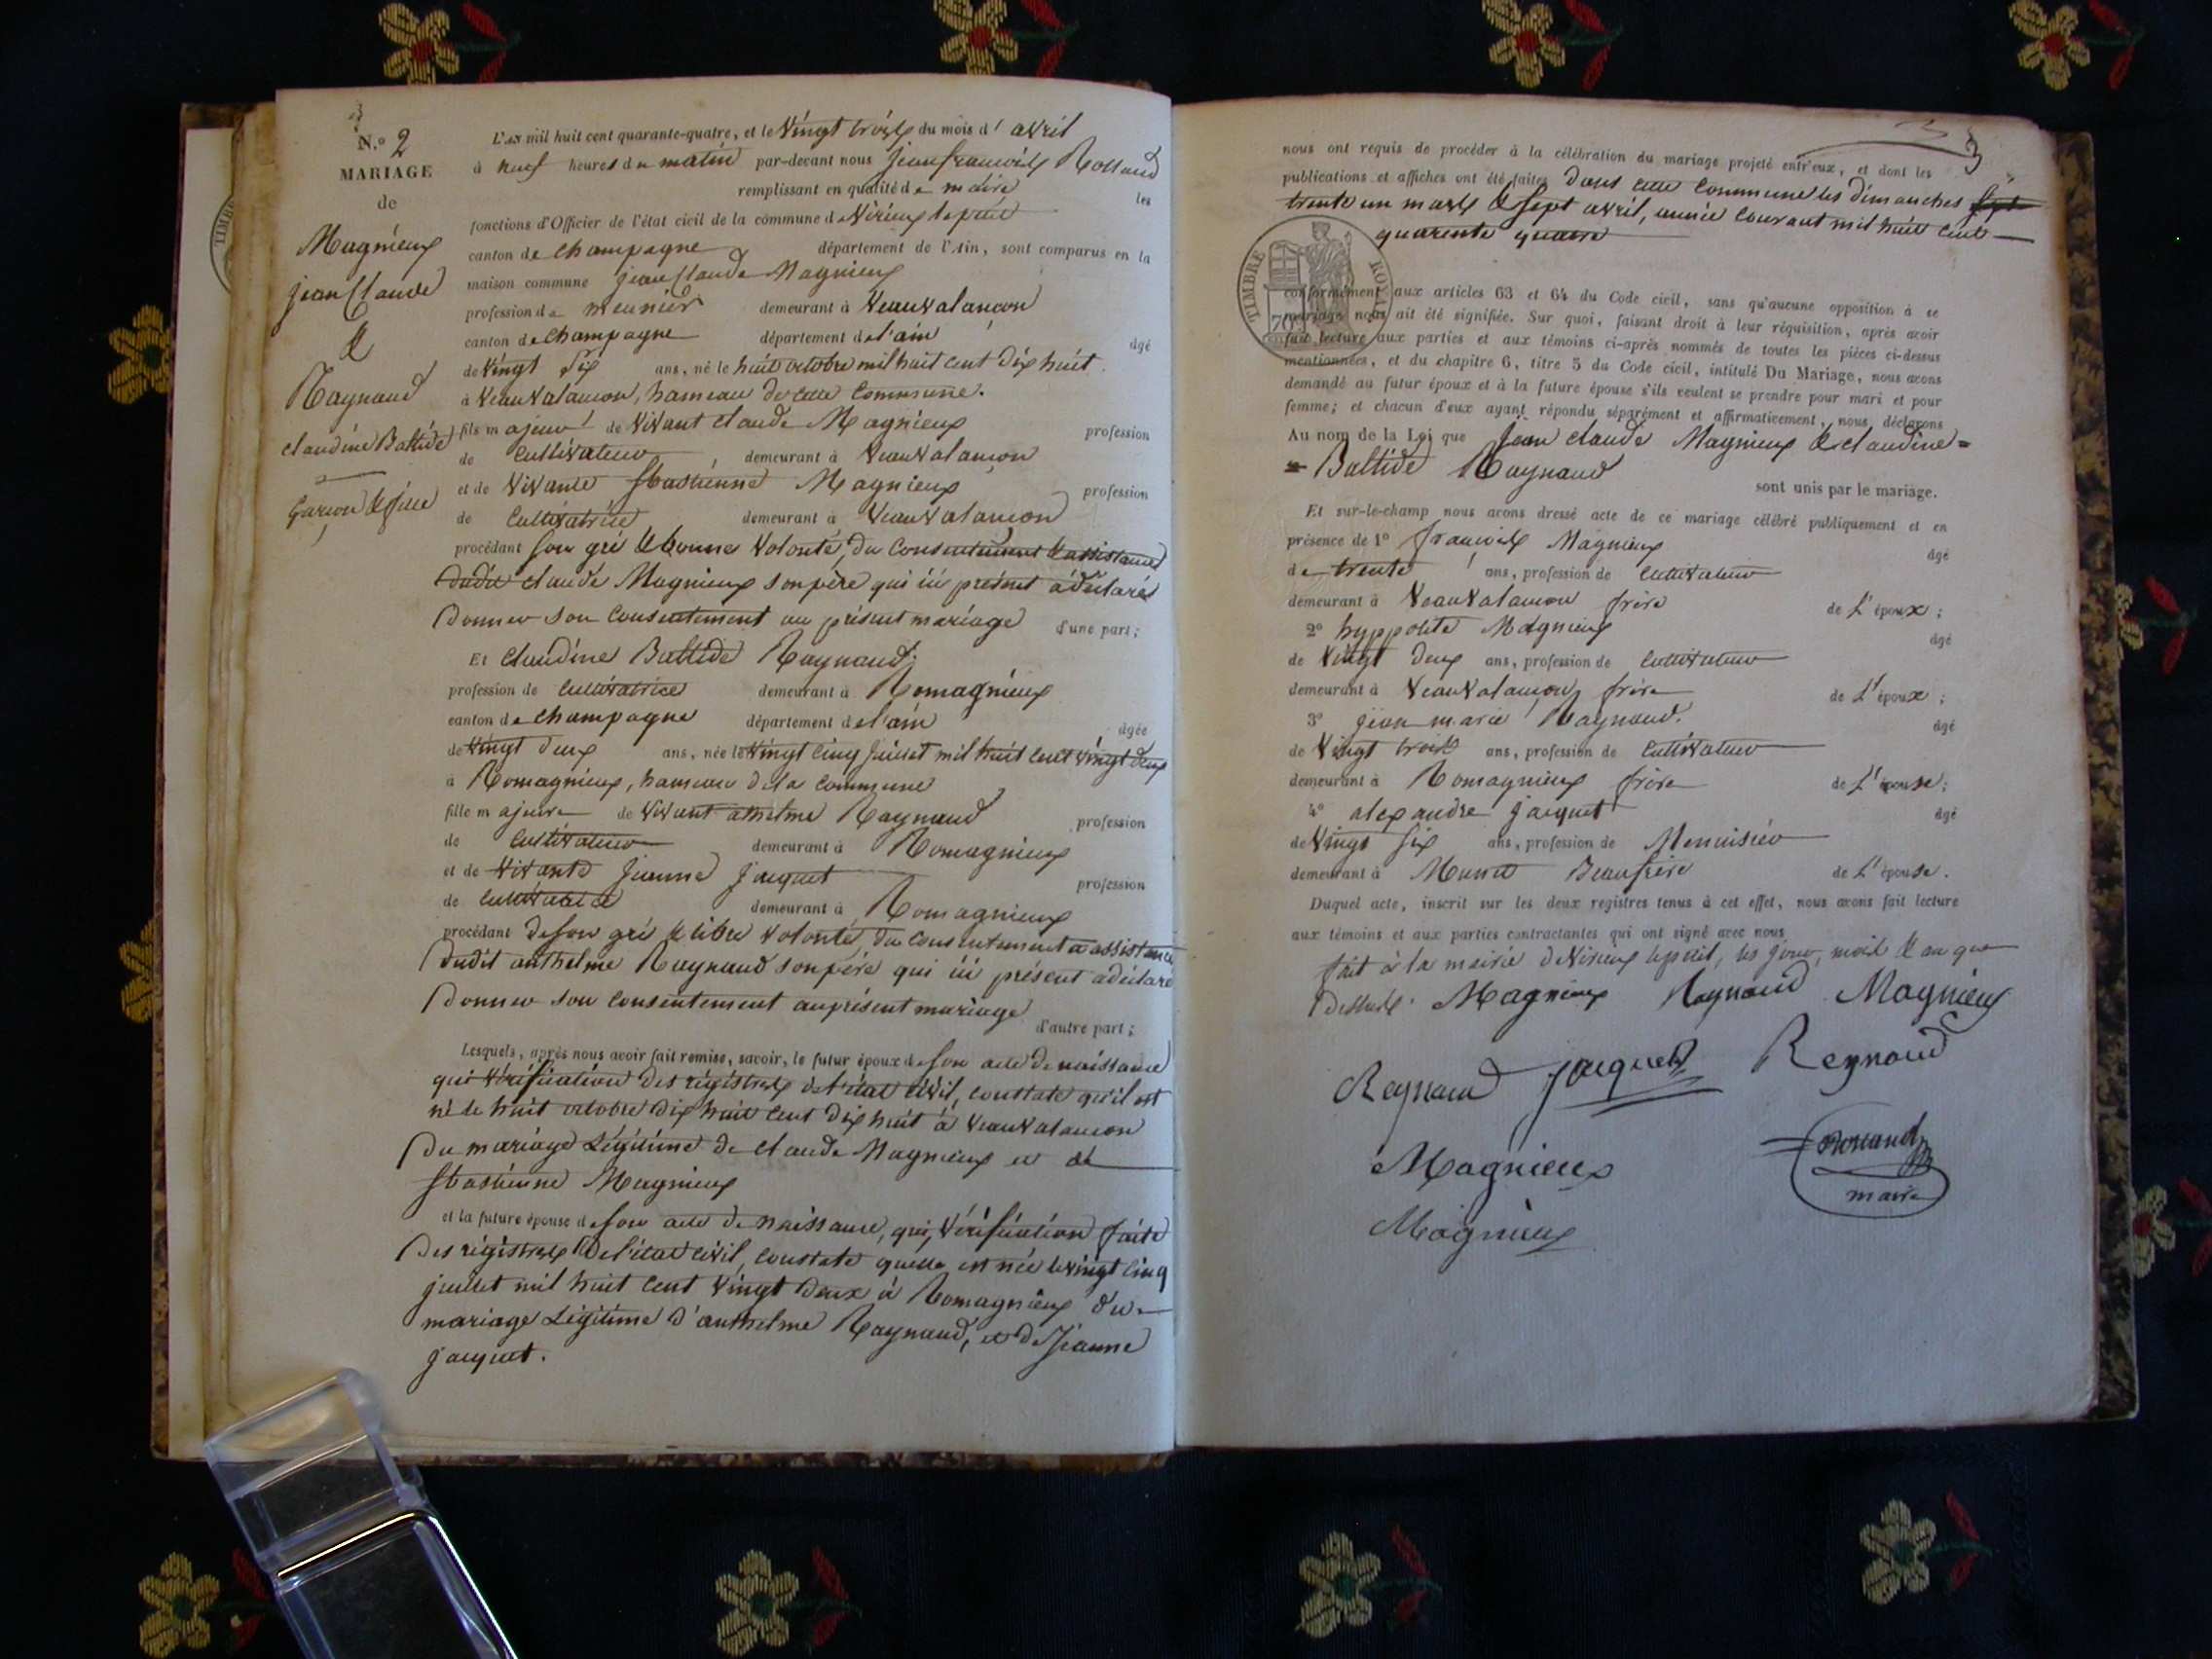 N.o 2
MARIAGE
de
Magnieux
jean Claude
&
Raynaud
claudine Baltide
garçon & fille
L'an mil huit cent quarante-quatre, et le Vingt trois du mois d' avril
à neuf heures du matin par-devant nous jean françois Rolland
remplissant en qualité de maire les
fonctions d'Officier de l'état civil de la commune de Virieux le petit
canton de champagne département de l'Ain, sont comparus en la
maison commune jean Claude Magnieux
profession de meunier demeurant à Veauvalançon
canton de champagne département de l'ain âgé
de Vingt six ans, né le huit octobre mil huit cent dix huit
à Veauvalancon, hameau de cette Commune.
fils majeur de Vivant claude Magnieux profession
de Cultivateur, demeurant à Veauvalançon
et de Vivante Sbastienne Magnieux profession
de Cultivatrice demeurant à Veauvalancon
procédant son gré & bonne Volonté, du Consentement & assistance
dudit claude Magnieux son père qui ici présent a déclaré
Donner son Consentement au présent mariage d'une part;
Et Claudine Baltide Raynaud,
profession de Cultivatrice demeurant à Romagnieux
canton de Champagne département de l'ain âgée
de Vingt deux ans, née le Vingt cinq juillet mil huit cent vingt deux
à Romagnieux, hameau de la commune
fille majeure de Vivant anthelme Raynaud profession
de Cultivateur demeurant à Romagnieux
et de Vivante Jeanne Jacquet profession
de Cultivatrice demeurant à Romagnieux
procédant de son gré & libre Volonté, du Consentement & assistance
Dudit anthelme Raynaud son père qui ici présent a déclaré
Donner son Consentement au présent mariage d'autre part;
Lesquels, après nous avoir fait remise, savoir, le futur époux de son acte de naissance
qui Vérification des régistres de l'état civil, constate qu'il est
né le huit octobre dix huit cent dix huit à Veauvalancon
Du mariage Légitime de claude Magnieux et de
Sbastienne Magnieux
et la future épouse de son acte de naissance, qui, Vérification faite
Des régistres de l'état civil, constate quelle est née le vingt cinq
juillet mil huit cent Vingt Deux à Romagnieux du
mariage Légitime d'anthelme Raynaud, et de Jeanne
jacquet.
3
nous ont requis de procéder à la célébration du mariage projeté entr'eux, et dont les
publications et affiches ont été faites Dans cette Commune les dimanches
trente un mars & sept avril, année courant mil huit cent
quarente quatre
TIMBRE ROYAL
conformément aux articles 63 et 64 du Code civil, sans qu'aucune opposition à ce
mariage nous ait été signifiée. Sur quoi, faisant droit à leur réquisition, après avoir
fait lecture aux parties et aux témoins ci-après nommés de toutes les pièces ci-dessus
mentionnées, et du chapitre 6, titre 5 du Code civil, intitulé Du Mariage, nous avons
demandé au futur époux et à la future épouse s'ils veulent se prendre pour mari et pour
femme; et chacun d'eux ayant répondu séparément et affirmativement, nous déclarons
Au nom de la Loi que Jean claude Magnieux & claudine
Baltide Raynaud
sont unis par le mariage.
Et sur-le-champ nous avons dressé acte de ce mariage célébré publiquement et en
présence de 1o françois Magnieux âgé
de trente ans, profession de cultivateur
demeurant à Veauvalancon frère de L'époux;
2o hyppolite Magnieux âgé
de Vingt deux ans, profession de Cultivateur
demeurant à Veauvalançon frère de L'époux;
3o jean marie Raynaud. âgé
de Vingt trois ans, profession de Cultivateur
demeurant à Romagnieux frère de L'épouse;
4o alexandre jacquet âgé
de Vingt six ans, profession de Menuisier
demeurant à Beaufrère de L'épouse.
Duquel acte, inscrit sur les deux registres tenus à cet effet, nous avons fait lecture
aux témoins et aux parties contractantes qui ont signé avec nous
fait à la mairie de Virieux le petit, les jour, mois & an que
Dessus. Magnieux Raynaud Magnieux
Reynaud jacquet Reynaud
Magnieux Rolland
maire
Magnieux